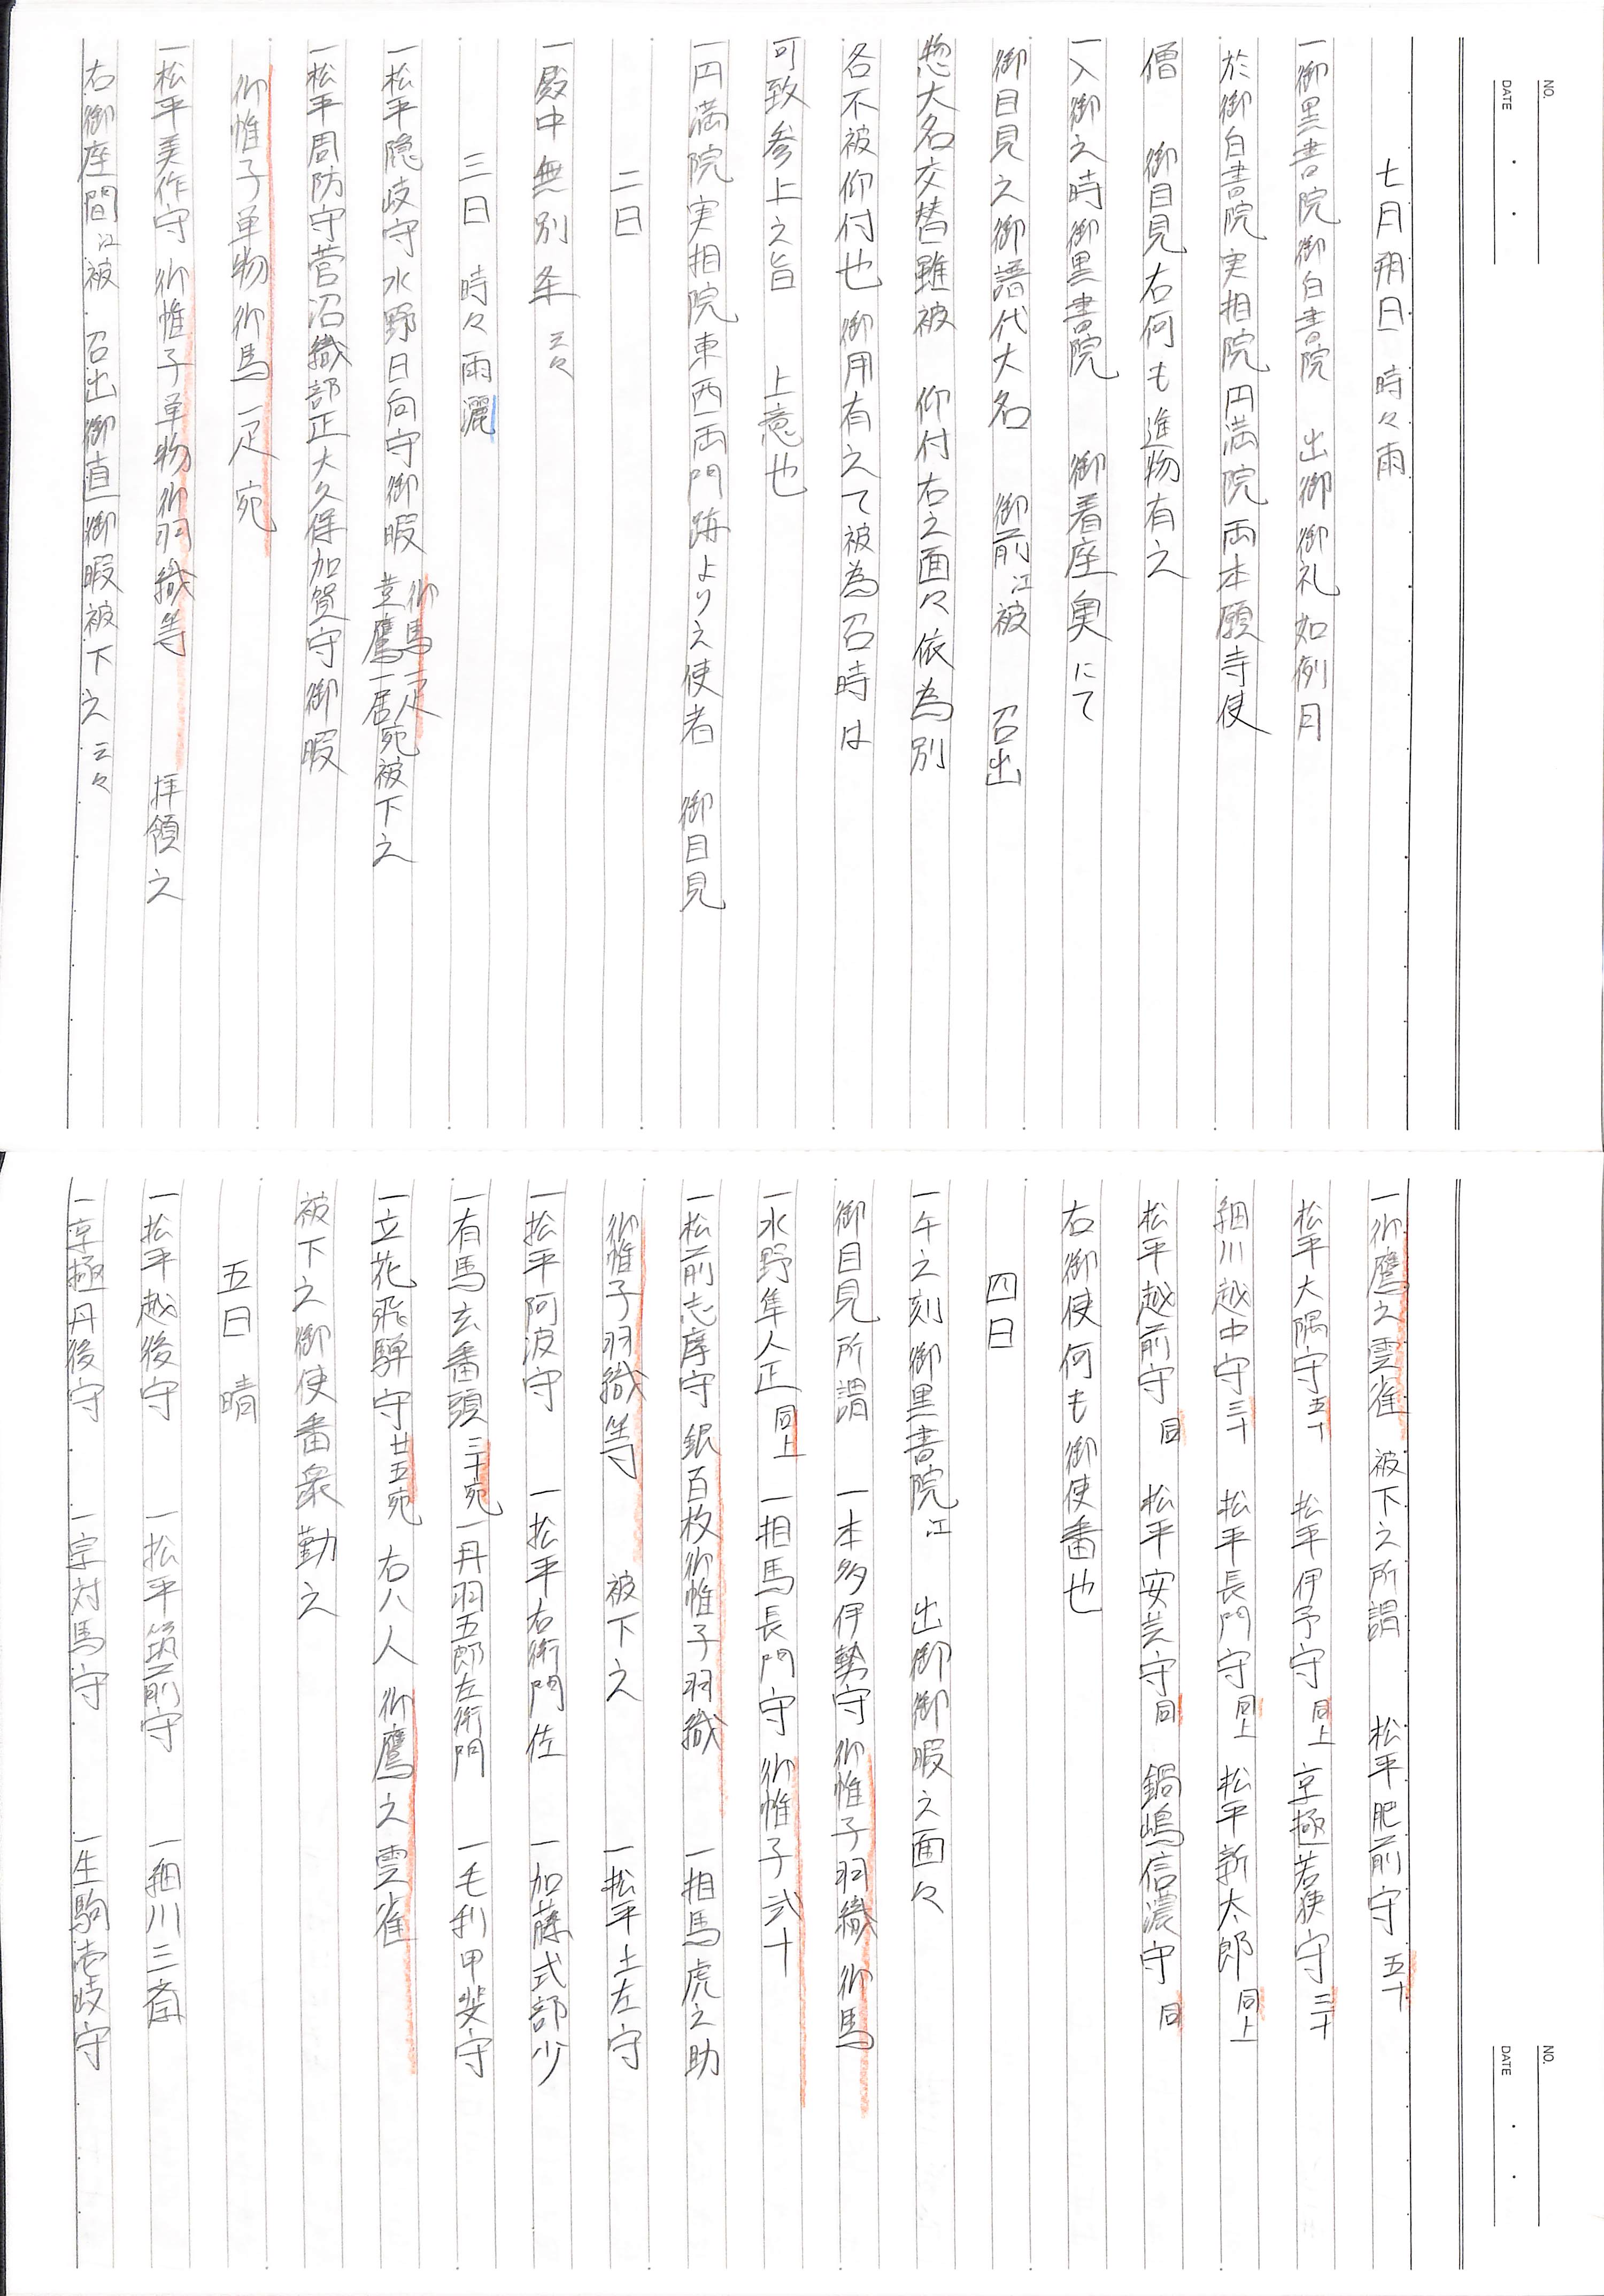 NO.
DATE
七月朔日 時々雨
一御黒書院御白書院 出御御礼如例月
於御白書院実相院円満院両本願寺使
僧 御目見右何も進物有之
一入御之時御黒書院 御着座奥にて
御目見之御譜代大名 御前江被 召出
惣大名交替雖被 仰付右之面々依為別
各不被仰付也 御用有之て被為召時は
可致参上之旨 上意也
一円満院実相院東西両門跡よりえ使者 御目見
二日
一殿中無別条 云々
三日 時々雨灑
一松平隠岐守水野日向守御暇 御馬一疋 並鷹一居宛 被下之
一松平周防守菅沼織部正大久保加賀守御暇
御帷子単物御馬一疋宛
一松平美作守 御帷子単物御羽織等 拝領之
右御座間江被 召出御直御暇被下之 云々
NO.
DATE
一御鷹之雲雀 被下之所謂 松平肥前守 五十
松平大隅守五十 松平伊予守 同上 京極若狭守 三十
細川越中守三十 松平長門守 同上 松平新太郎 同上
松平越前守 同 松平安芸守 同 鍋嶋信濃守 同
右御使何も御使番也
四日
一午之刻御黒書院江 出御御暇之面々
御目見所謂 一本多伊勢守 御帷子羽織御馬
一水野隼人正 同上 一相馬長門守 御帷子弐十
一松前志摩守 銀百枚御帷子羽織 一相馬虎之助
御帷子羽織等 被下之 一松平土左守
一松平阿波守 一松平右衛門佐 一加藤式部少
一有馬玄番頭 三十宛 一丹羽五郎左衛門 一毛利甲斐守
一立花飛騨守 廿五宛 右八人 御鷹之雲雀
被下之御使番衆勤之
五日 晴
一松平越後守 一松平筑前守 一細川三斎
一京極丹後守 一宗対馬守 一生駒壱岐守